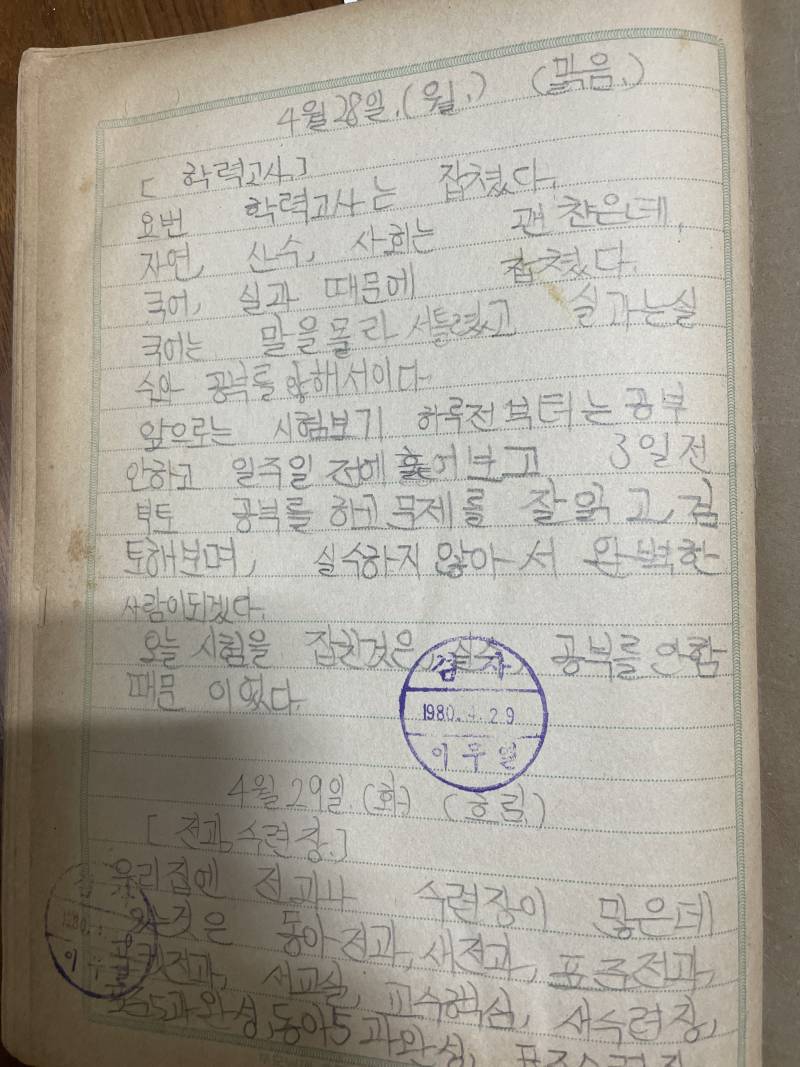 4월 28일.(월.) (맑음.)
[학력고사.]
요번 학력고사는 잡쳤다.
자연, 산수, 사회는 괜찮은데,
국어, 실과 때문에 잡쳤다.
국어는 말을몰라서틀렸고 실과는실
수와 공부를 않해서이다.
앞으로는 시험보기 하루전부터는 공부
안하고 일주일 전에 훑어보고 3일전
부토 공부를 하고 문제를 잘 읽고, 검
토해보며, 실수하지 않아서 완벽한
사람이되겠다.
오늘 시험을 잡친것은, 실수, 공부를 안함
때문 이었다.
검사
1980. 4. 29
이무일
4월 29일.(화.) (흐림.)
[전과, 수련장.]
우리집엔 전과나 수련장이 많은데
것은 동아전과, 새전과, 표준전과,
전과, 서교실, 교수핵심, 사수련장,
5과완성, 동아5과완성, 표준수련장
1980.
이무